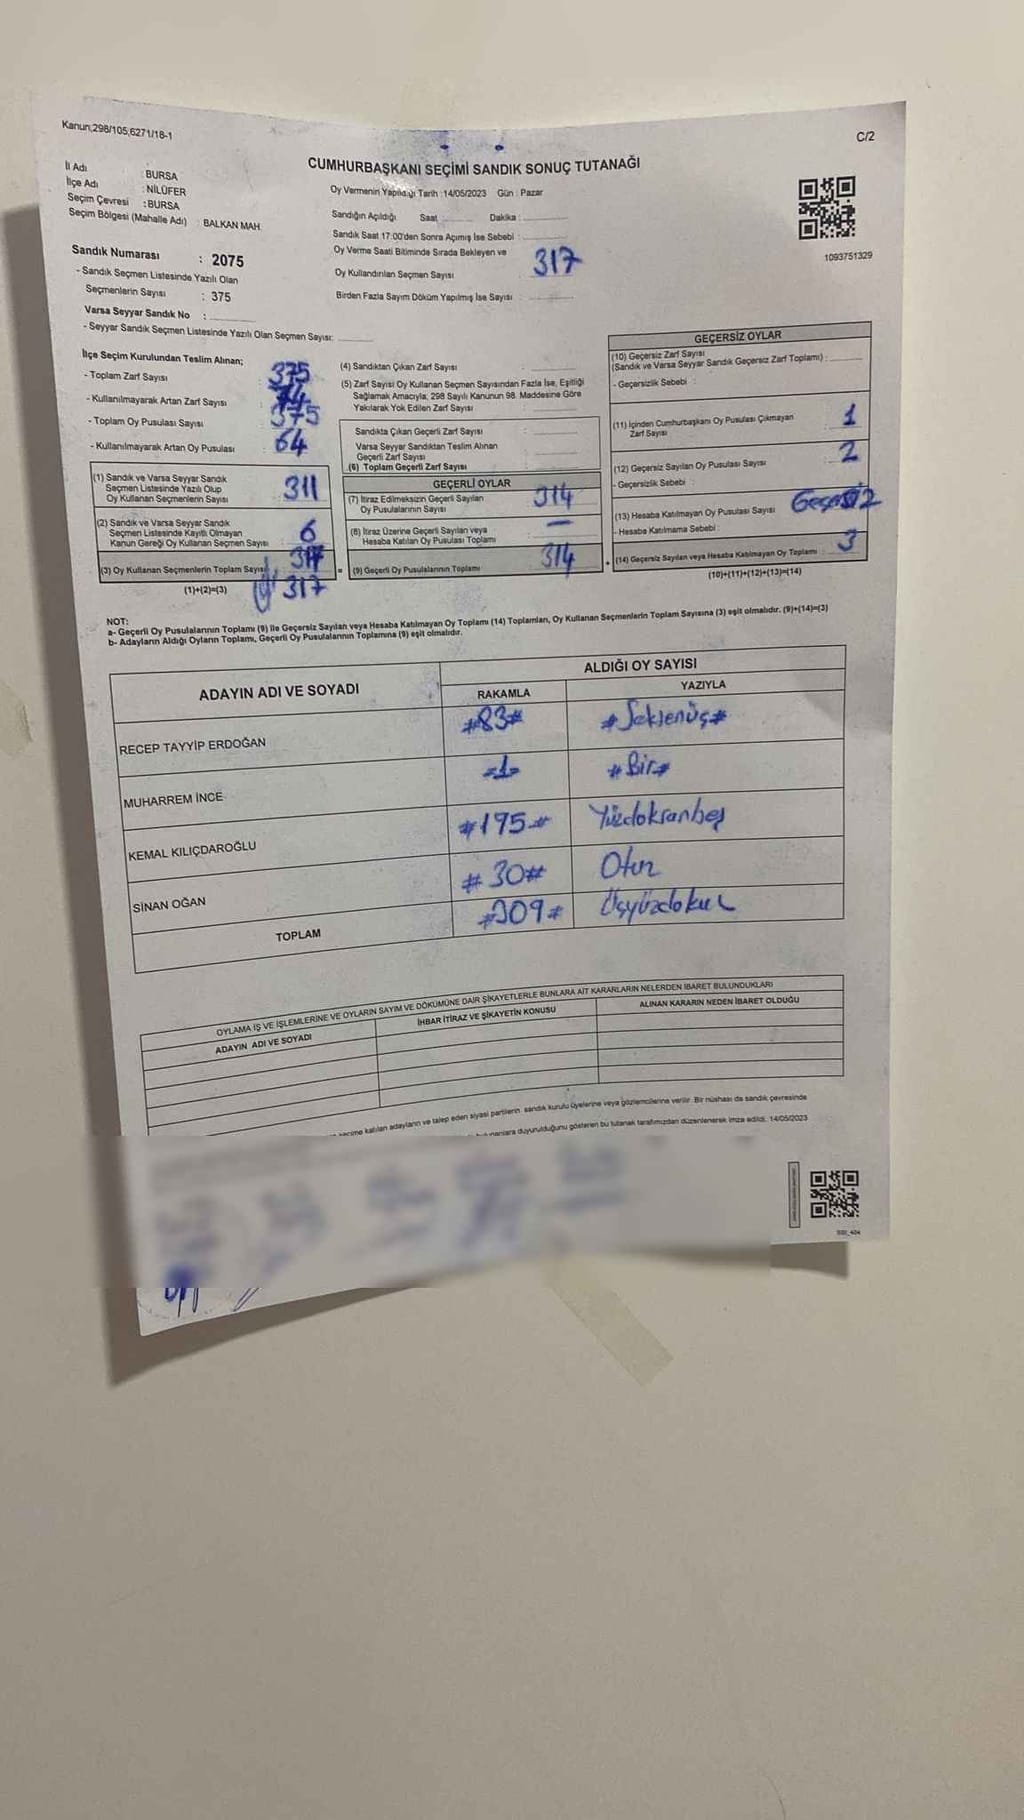 Kanun;298/105,6271/18-1
C/2
CUMHURBAŞKANI SEÇİMİ SANDIK SONUÇ TUTANAĞI
İl Adı : BURSA
İlçe Adı : NİLÜFER
Seçim Çevresi : BURSA
Seçim Bölgesi (Mahalle Adı) : BALKAN MAH.
Sandık Numarası : 2075
- Sandık Seçmen Listesinde Yazılı Olan
Seçmenlerin Sayısı : 375
Varsa Seyyar Sandık No :
- Seyyar Sandık Seçmen Listesinde Yazılı Olan Seçmen Sayısı:
Oy Vermenin Yapıldığı Tarih :14/05/2023 Gün : Pazar
Sandığın Açıldığı Saat : Dakika :
Sandık Saat 17:00'den Sonra Açımış İse Sebebi :
Oy Verme Saati Bitiminde Sırada Bekleyen ve
Oy Kullandırılan Seçmen Sayısı : 317
Birden Fazla Sayım Döküm Yapılmış İse Sayısı :
1093751329
İlçe Seçim Kurulundan Teslim Alınan;
- Toplam Zarf Sayısı : 375
- Kullanılmayarak Artan Zarf Sayısı :
- Toplam Oy Pusulası Sayısı : 375
- Kullanılmayarak Artan Oy Pusulası : 64
(1) Sandık ve Varsa Seyyar Sandık
Seçmen Listesinde Yazılı Olup
Oy Kullanan Seçmenlerin Sayısı : 311
(2) Sandık ve Varsa Seyyar Sandık
Seçmen Listesinde Kayıtlı Olmayan
Kanun Gereği Oy Kullanan Seçmen Sayısı : 6
(3) Oy Kullanan Seçmenlerin Toplam Sayısı :
(1)+(2)=(3) 317
(4) Sandıktan Çıkan Zarf Sayısı :
(5) Zarf Sayısı Oy Kullanan Seçmen Sayısından Fazla İse, Eşitliği
Sağlamak Amacıyla, 298 Sayılı Kanunun 98. Maddesine Göre
Yakılarak Yok Edilen Zarf Sayısı :
Sandıkta Çıkan Geçerli Zarf Sayısı :
Varsa Seyyar Sandıktan Teslim Alınan
Geçerli Zarf Sayısı :
(6) Toplam Geçerli Zarf Sayısı
GEÇERLİ OYLAR
(7) İtiraz Edilmeksizin Geçerli Sayılan
Oy Pusulasının Sayısı : 314
(8) İtiraz Üzerine Geçerli Sayılan veya
Hesaba Katılan Oy Pusulası Toplamı : —
= (9) Geçerli Oy Pusulalarının Toplamı : 314
GEÇERSİZ OYLAR
(10) Geçersiz Zarf Sayısı
(Sandık ve Varsa Seyyar Sandık Geçersiz Zarf Toplamı) :
- Geçersizlik Sebebi :
(11) İçinden Cumhurbaşkanı Oy Pusulası Çıkmayan
Zarf Sayısı : 1
(12) Geçersiz Sayılan Oy Pusulası Sayısı : 2
- Geçersizlik Sebebi :
(13) Hesaba Katılmayan Oy Pusulası Sayısı : Geçersiz
- Hesaba Katılmama Sebebi :
+ (14) Geçersiz Sayılan veya Hesaba Katılmayan Oy Toplamı : 3
(10)+(11)+(12)+(13)=(14)
NOT:
a- Geçerli Oy Pusulalarının Toplamı (9) ile Geçersiz Sayılan veya Hesaba Katılmayan Oy Toplamı (14) Toplamları, Oy Kullanan Seçmenlerin Toplam Sayısına (3) eşit olmalıdır. (9)+(14)=(3)
b- Adayların Aldığı Oyların Toplamı, Geçerli Oy Pusulalarının Toplamına (9) eşit olmalıdır.
ADAYIN ADI VE SOYADI
ALDIĞI OY SAYISI
RAKAMLA YAZIYLA
RECEP TAYYİP ERDOĞAN #83# #Seksenüç#
MUHARREM İNCE =1= #Bir#
KEMAL KILIÇDAROĞLU #195# Yüzdoksanbeş
SİNAN OĞAN #30# Otuz
TOPLAM #309# Üçyüzdokuz
OYLAMA İŞ VE İŞLEMLERİNE VE OYLARIN SAYIM VE DÖKÜMÜNE DAİR ŞİKAYETLERLE BUNLARA AİT KARARLARIN NELERDEN İBARET BULUNDUKLARI
ADAYIN ADI VE SOYADI İHBAR İTİRAZ VE ŞİKAYETİN KONUSU ALINAN KARARIN NEDEN İBARET OLDUĞU
seçime katılan adayların ve talep eden siyasi partilerin sandık kurulu üyelerine veya gözlemcilerine verilir. Bir nüshası da sandık çevresinde
duyurulduğunu gösteren bu tutanak tarafımızdan düzenlenerek imza edildi. 14/05/2023